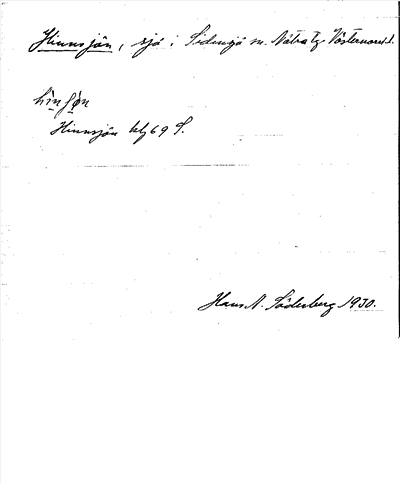 Hinnsjön, sjö i Sidensjö sn. Nätra tg Västernorrl.
hìnʃø̀n
Hinnsjön blz 69 S.
Hans A. Söderberg 1930.